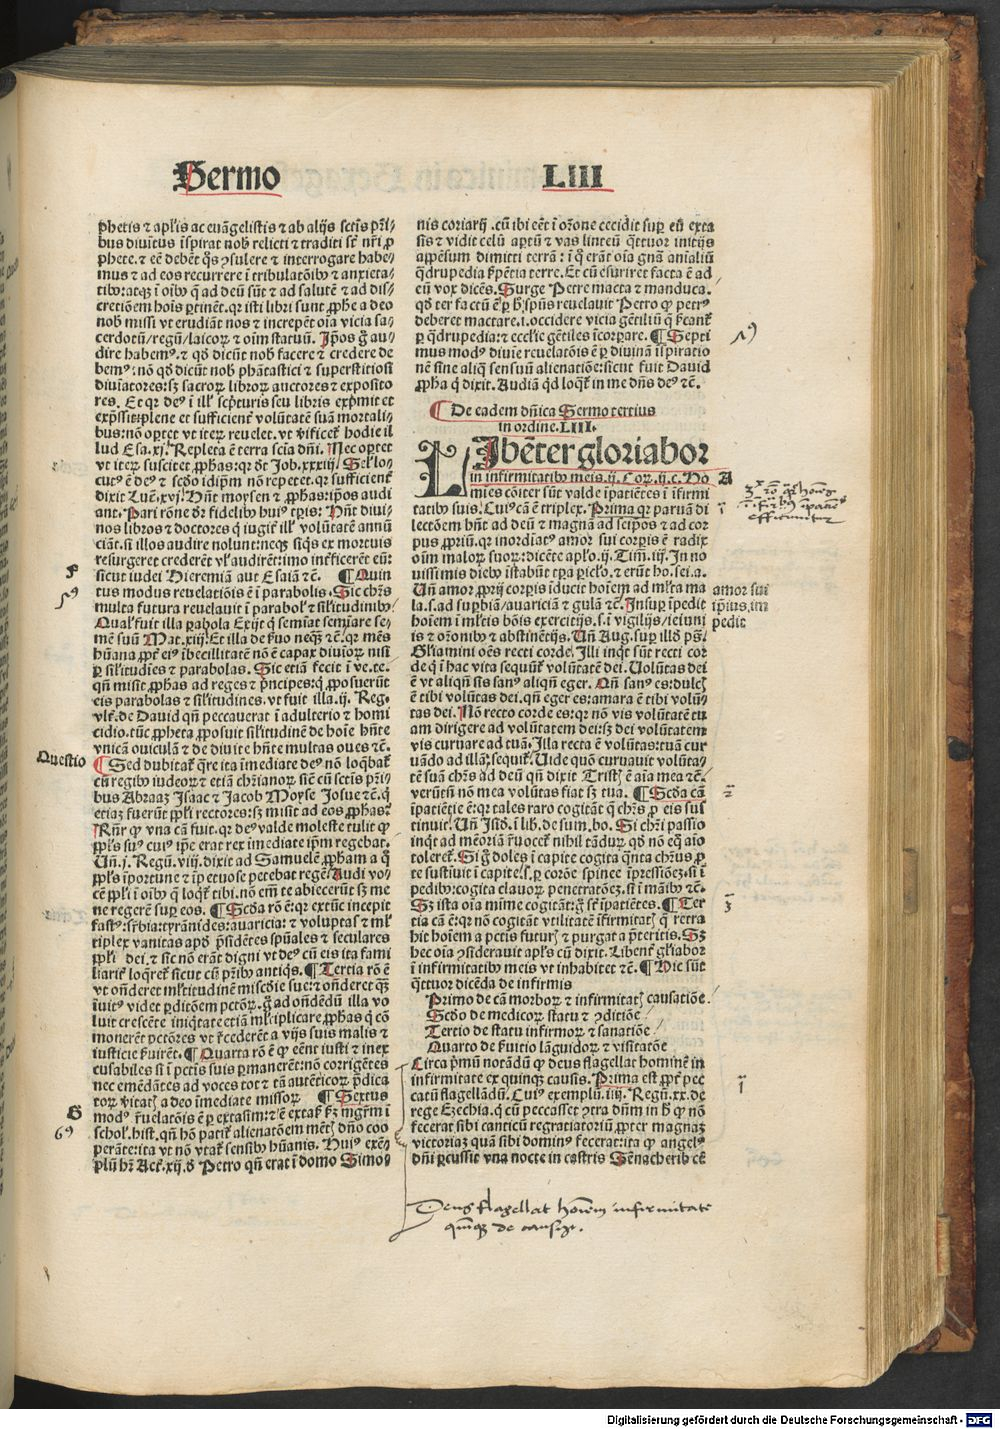 Sermo LIII
phetis ⁊ apl'is ac euāgelistis ⁊ ab alijs sctīs pr̄i-
bus diuīt̄us īspirat nob̄ relicti ⁊ traditi st̄ nr̄i ꝓ
phete. ⁊ eē debēt q̄s ꝯsulere ⁊ interrogare habe-
mus ⁊ ad eos recurrere ī tribulatōib9 ⁊ anxieta-
tib9: atqꝫ ī oib9 q̄ ad deū sūt ⁊ ad salutē ⁊ ad dis-
cretiōem hoīs ꝑtinēt. qr isti libri sunt ꝓphe a deo
nob̄ missi vt erudiāt nos ⁊ increpēt oīa vicia sa-
cerdotū/regū/laicoꝝ ⁊ oīm statuū. Ip̄os g̊ au-
dire habem9. ⁊ qd̄ dicūt nob̄ facere ⁊ credere de
bem9: nō qd̄ dicūt nob̄ phātastici ⁊ superstitiosi
diuīatores: sꝫ sacroꝝ libroꝝ auctores ⁊ exposito
res. Et qr de9 ī ill' scp̄turis seu libris exp̄mit et
exp̄ssit plene et sufficient̄ volūtatē suā mortali-
bus: nō optet vt iteꝝ reuelet. vt v̓ificet̄ hodie il
lud Esa. xj. Repleta ē terra scīa dn̄i. Nec optet
vt iteꝝ suscitet ꝓphas: qr dt̄ Job. xxxiij. Sel' lo-
cut9 ē de9 ⁊ scdo idip̄m nō repetet. qr sufficient̄
dixit Luc̄. xvj. Hn̄t moysen ⁊ ꝓphas: ip̄os audi
ant. Pari rōne dr̄ fidelib9 hui9 tp̄is: Hn̄t diui-
nos libros ⁊ doctores q̄ iugit̄ ill' volūtatē annū
ciāt. si illos audire nolunt: neqꝫ siq̄s ex mortuis
resurgeret crederēt vl' audirēt: imo inficerēt eū:
sicut iudei Hieremiā aut Esaiā ⁊c̄. ¶ Quin
tus modus reuelatiōis ē ī parabolis. Sic chr̄s
multa futura reuelauit ī parabol' ⁊ sil'itudinib9
Qual' fuit illa ꝑabola Exijt q̄ seminat semīare se-
mē suū Mat. xiij. Et illa de f̄uo neqꝫ ⁊c̄. qr mēs
hūana ꝓpt̄ ei9 ībecillitatē nō ē capax diuīoꝝ nisi
ꝑ sil'itudīes ⁊ parabolas. Sic etiā fecit ī ve. te.
qn̄ misit ꝓphas ad reges ⁊ pn̄cipes: q̄ ꝓposuerūt
eis parabolas ⁊ sil'itudines. vt fuit illa. ij. Reg.
vlt̄. de David qn̄ peccauerat ī adulterio ⁊ homi
cidio. tūc ꝓpheta ꝓposuit sil'itudinē de hoīe hn̄te
vnicā ouiculā ⁊ de diuite hn̄te multas oues ⁊c̄.
Questio
¶ Sed dubitat̄ qr̄e ita īmediate de9 nō loqbat̄
cū regib9 iudeoꝝ ⁊ etiā chr̄ianoꝝ siē cū sctīs pr̄i-
bus Abraaz Isaac ⁊ Jacob Moyse Josue ⁊c̄. q̄
etiaz fuerūt ppl'i rectores: sꝫ misit ad eos ꝓphas:
Rn̄r ꝙ vna cā fuit. qr de9 valde moleste tulit ꝙ
ppl's su9 cui9 ip̄e erat rex īmediate ip̄m regebat.
Un̄. j. Regū. viij. dixit ad Samuelē ꝓpham a q̄
ppl's īportune ⁊ īpetuose petebat regē: Audi vo-
cē ppl'i ī oib9 q̄ loqt̄ tibi. nō em̄ te abiecerūt sꝫ me
ne regerē suꝑ eos. ¶ Scda rō ē: qr extūc incepit
fast9: suꝑbia: tyrānides: auaricia: ⁊ voluptas ⁊ ml'
tiplex vanitas apd̄ p̄sidētes sp̄uales ⁊ seculares
ppl'i dei. ⁊ sic nō erāt digni vt de9 cū eis ita fami
liarit̄ loqret̄ sicut cū pr̄ib9 antiqs. ¶ Tertia rō ē
vt on̄deret ml'titudinē miscd̄ie sue: ⁊ on̄deret q̄ꝫ
īuit9 videt ꝑditōem pctōꝝ. g̊ ad on̄dēdū illa vo
luit crescēte iniqtate etiā ml'tiplicare ꝓphas q̄ cō
monerēt pctōres vt r̄cederēt a vijs suis malis ⁊
iusticie f̄uirēt. ¶ Quarta rō ē ꝙ eēnt iusti ⁊ inex
cusabiles si ī pctīs suis ꝑmanerēt: nō corrigētes
nec emēdātes ad voces tot ⁊ tā autēticoꝝ p̄dica
toꝝ v̓itatꝭ a deo īmediate missoꝝ ¶ Sextus
mod9 r̄uelatōis ē ꝑ extasim: ⁊ ē extaf̄ fꝫ mgr̄m ī
schol. hist. qn̄ hō patit̄ alienatōem mētꝭ dn̄o coo
perāte: ita vt nō vtat̄ sensib9 hūanis. Hui9 exē-
plū hr̄ Act̄. xij. d̄ Petro qn̄ erat ī domo Simo-
nis coriarij. cū ibi eēt ī orōne cecidit suꝑ eū exta
sis ⁊ vidit celū aꝑtū ⁊ vas linteū qttuor initijs
appēsum dimitti terrā: ī q̄ erāt oīa gn̄a aīaliū
q̄drupedia f̄pētia terre. Et cū esuriret facta ē ad
eū vox dicēs. Surge Petre macta ⁊ manduca.
qd̄ ter factū ē ꝑ h̄ sp̄us reuelauit Petro ꝙ petr9
deberet mactare. i. occidere vicia gētiliū q̄ f̄eant̄
ꝑ q̄drupedia: ⁊ eccl'ie gētiles īcorꝑare. ¶ Septi
mus mod9 diuīe reuelatōis ē ꝑ diuinā īspiratio
nē sine aliq̄ sensuū alienatiōe: sicut fuit David
ꝓpha q̄ dixit. Audiā qd̄ loqt̄ in me dn̄s de9 ⁊c̄.
¶ De eadem dn̄ica Sermo tertius
in ordine. LIII.
LIbēter gloriabor
in infirmitatib9 meis. ij. Coꝝ. ij. c. Ho
mīes cōiter sūt valde īpatiētes ī īfirmi
tatib9 suis. Cui9 cā ē triplex. Prima qr paruā di
lectōem hn̄t ad deū ⁊ magnā ad seip̄os ⁊ ad cor
pus ꝓpriū. qr inordīat9 amor sui corpis ē radix
oīm maloꝝ suoꝝ: dicēte apl'o. ij. Tim̄. iij. In no
uissimis dieb9 īstabūt tp̄ra picl'o. ⁊ erūt ho. sei. a.
Un̄ amor ꝓprij corpis īducit hoīem ad ml'ta ma
la. s. ad suꝑbiā/auariciā ⁊ gulā ⁊c̄. Insuꝑ īpedit
hoīem ī ml'tis bōis exercitijs. s. ī vigilijs/ieiuni
is ⁊ orōnib9 ⁊ abstinētijs. Un̄ Aug. suꝑ illd̄ ps̄.
Gl'iamini oēs recti corde. Illi inqt sūt recti cor
de q̄ ī hac vita sequūt̄ volūtatē dei. Volūtas dei
ē vt aliqn̄ sis san9 aliqn̄ eger. Qn̄ san9 es: dulcꝭ
ē tibi volūtas dei. qn̄ eger es: amara ē tibi volū-
tas dei. Nō recto corde es: qr nō vis volūtatē tu
am dirigere ad volūtatem dei: sꝫ dei volūtatem
vis curuare ad tuā. Illa recta ē volūtas: tuā cur
uādo ad illā: sequit̄. Uide quō curuauit volūta-
tē suā chr̄s ad deū qn̄ dixit Tristꝭ ē aīa mea ⁊c̄.
verūtn̄ nō mea volūtas fiat sꝫ tua. ¶ Scda cā
īpatiētie ē: qr tales raro cogitāt q̄ chr̄s ꝓ eis sus
tinuit. Un̄ Isid. ī lib. de sum. bo. Si chr̄i passio
inqt ad memoriā r̄uocet̄ nihil tā duꝝ qd̄ nō eq̄ aīo
toleret̄. Si g̊ doles ī capite cogita q̄nta chr̄us ꝓ
te sustiuit ī capite. s. ꝑ corōe spinee īpressiōez. si ī
pedib9: cogita clauoꝝ penetratōez. si ī māib9 ⁊c̄.
Sꝫ ista oīa mīme cogitāt: g̊ st̄ īpatiētes. ¶ Ter
tia cā ē: qr nō cogitāt vtilitatē īfirmitatꝭ q̄ retra
hit hoīem a pctīs futurꝭ ⁊ purgat a p̄teritis. Sꝫ
hec oīa ꝯsiderauit apl's cū dixit. Libent̄ gl'iabor
ī infirmitatib9 meis vt inhabitet ⁊c̄. ¶ Hic sūt
qttuor dicēda de infirmis
Primo de cā morboꝝ ⁊ infirmitatꝭ causatiōe.
Scdo de medicoꝝ statu ⁊ ꝯditiōe
Tertio de statu infirmoꝝ ⁊ sanatiōe
Quarto de f̄uitio lāguidoꝝ ⁊ visitatōe
Circa p̄mū notādū ꝙ deus flagellat hominē in
infirmitate ex quinqꝫ causis. Prima est ꝓpt̄ pec
catū flagellādū. Cui9 exemplū. iiij. Regū. xx. de
rege Ezechia. q̄ cū peccasset ꝯtra dn̄m in h̄ ꝙ nō
fecerat sibi canticū regratiatoriū ꝓpter magnaz
victoriaz quā sibi domin9 fecerat: ita ꝙ angel9
dn̄i ꝑcussit vna nocte in castris Sēnacherib cē
A
amor sui
ip̄ius. im
pedit
G
Deus flagellat hoīem infirmitate
quīqꝫ de causis.
Digitalisierung gefördert durch die Deutsche Forschungsgemeinschaft - DFG